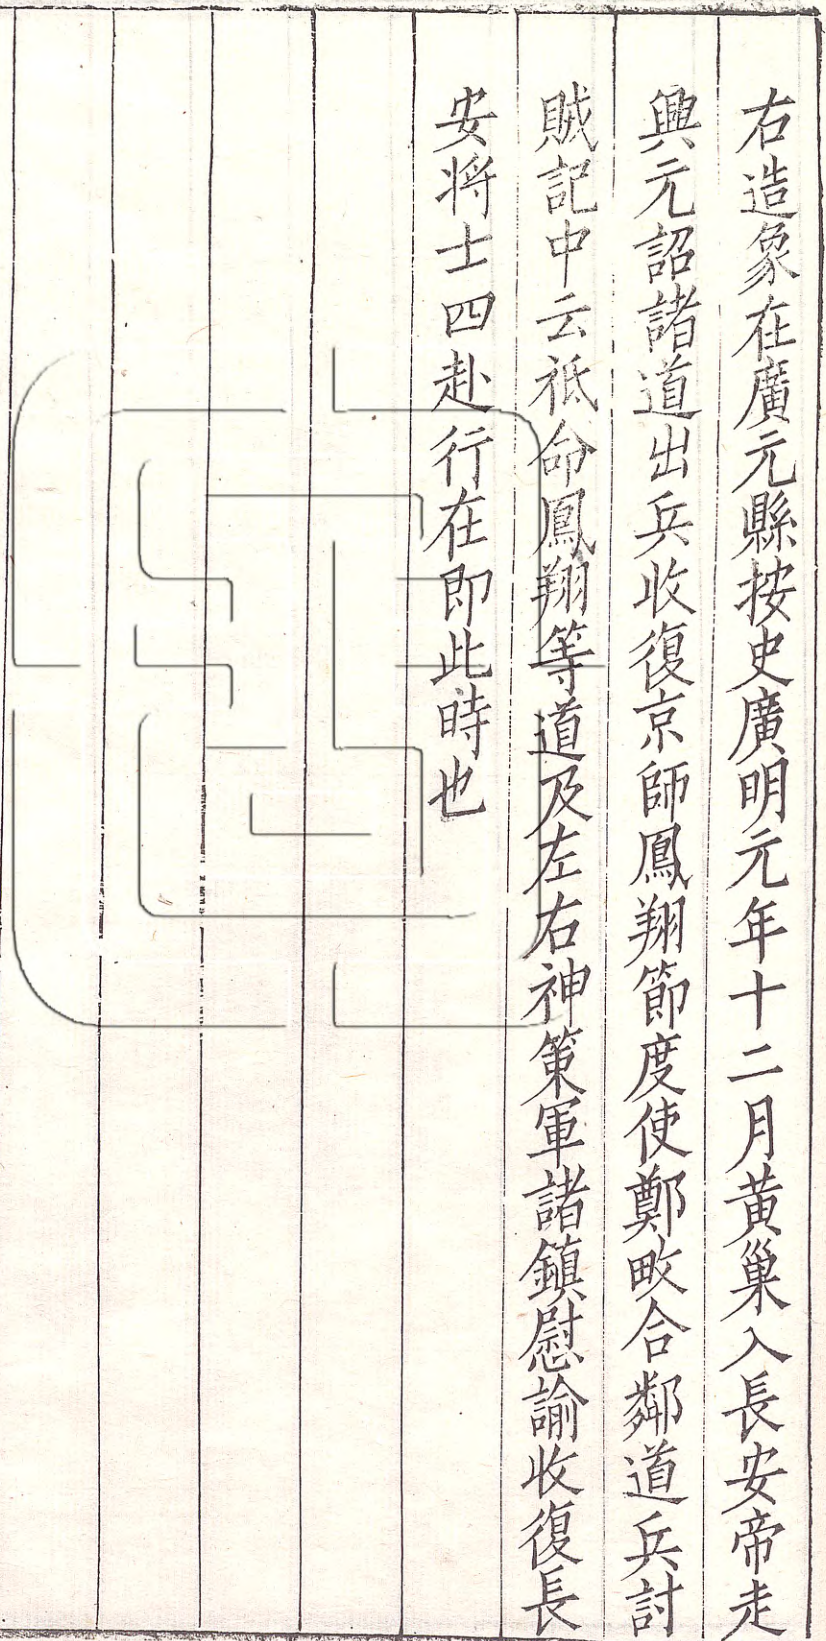 右造象在廣元縣按史廣明元年十二月黃巢入長安帝走
興元詔諸道出兵收復京師鳳翔節度使鄭畋合鄰道兵討
賊記中云祇命鳳翔等道及左右神策軍諸鎮慰諭收復長
安将士四赴行在即此時也